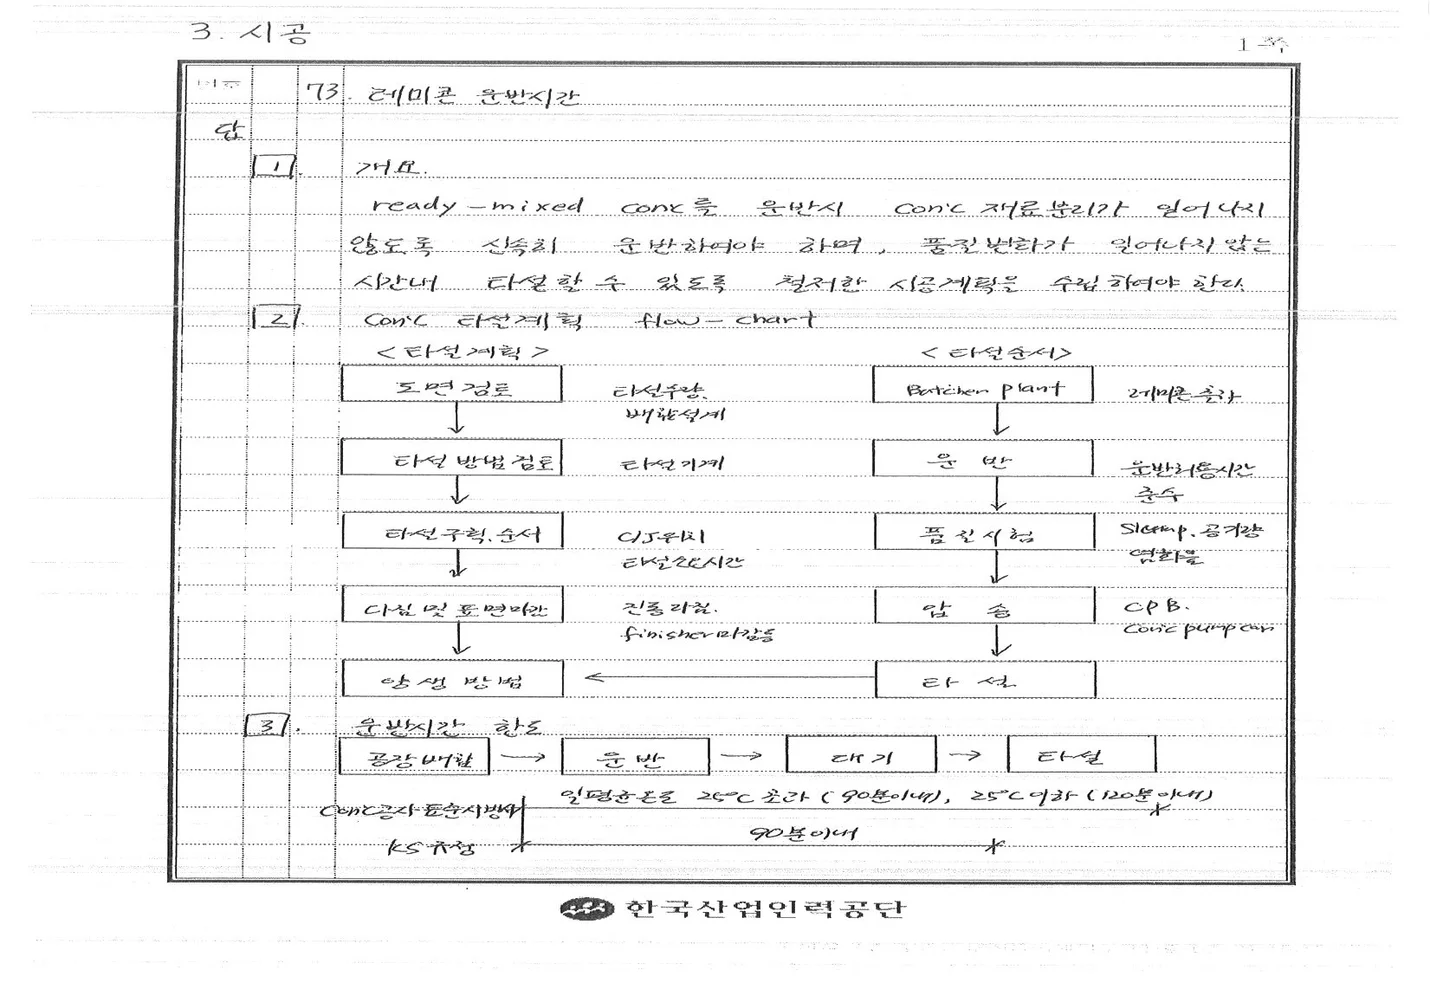 3. 시공
1 쪽
번호
73. 레미콘 운반시간
답
1. 개요.
ready-mixed con'c를 운반시 con'c 재료분리가 일어나지
않도록 신속히 운반하여야 하며, 품질변화가 일어나지 않는
시간내 타설할 수 있도록 철저한 시공계획을 수립하여야 한다.
2. Con'c 타설계획 flow-chart
<타설계획> <타설순서>
도면검토 타설수량. Batcher plant 레미콘
배합설계
타설방법검토 타설기계 운반 운반허용시간
준수
타설구획.순서 C/J위치 품질시험 Slump. 공기량
타설소요시간 염화물
다짐 및 표면마감 진동다짐. 압송 CPB.
finisher마감등 Con'c pump car
양생방법 ← 타설
3. 운반시간 한도
공장배합 → 운반 → 대기 → 타설
Con'c공사 표준시방서 일평균온도 25°C 초과 (90분이내), 25°C이하 (120분이내)
90분이내
KS규정
한국산업인력공단